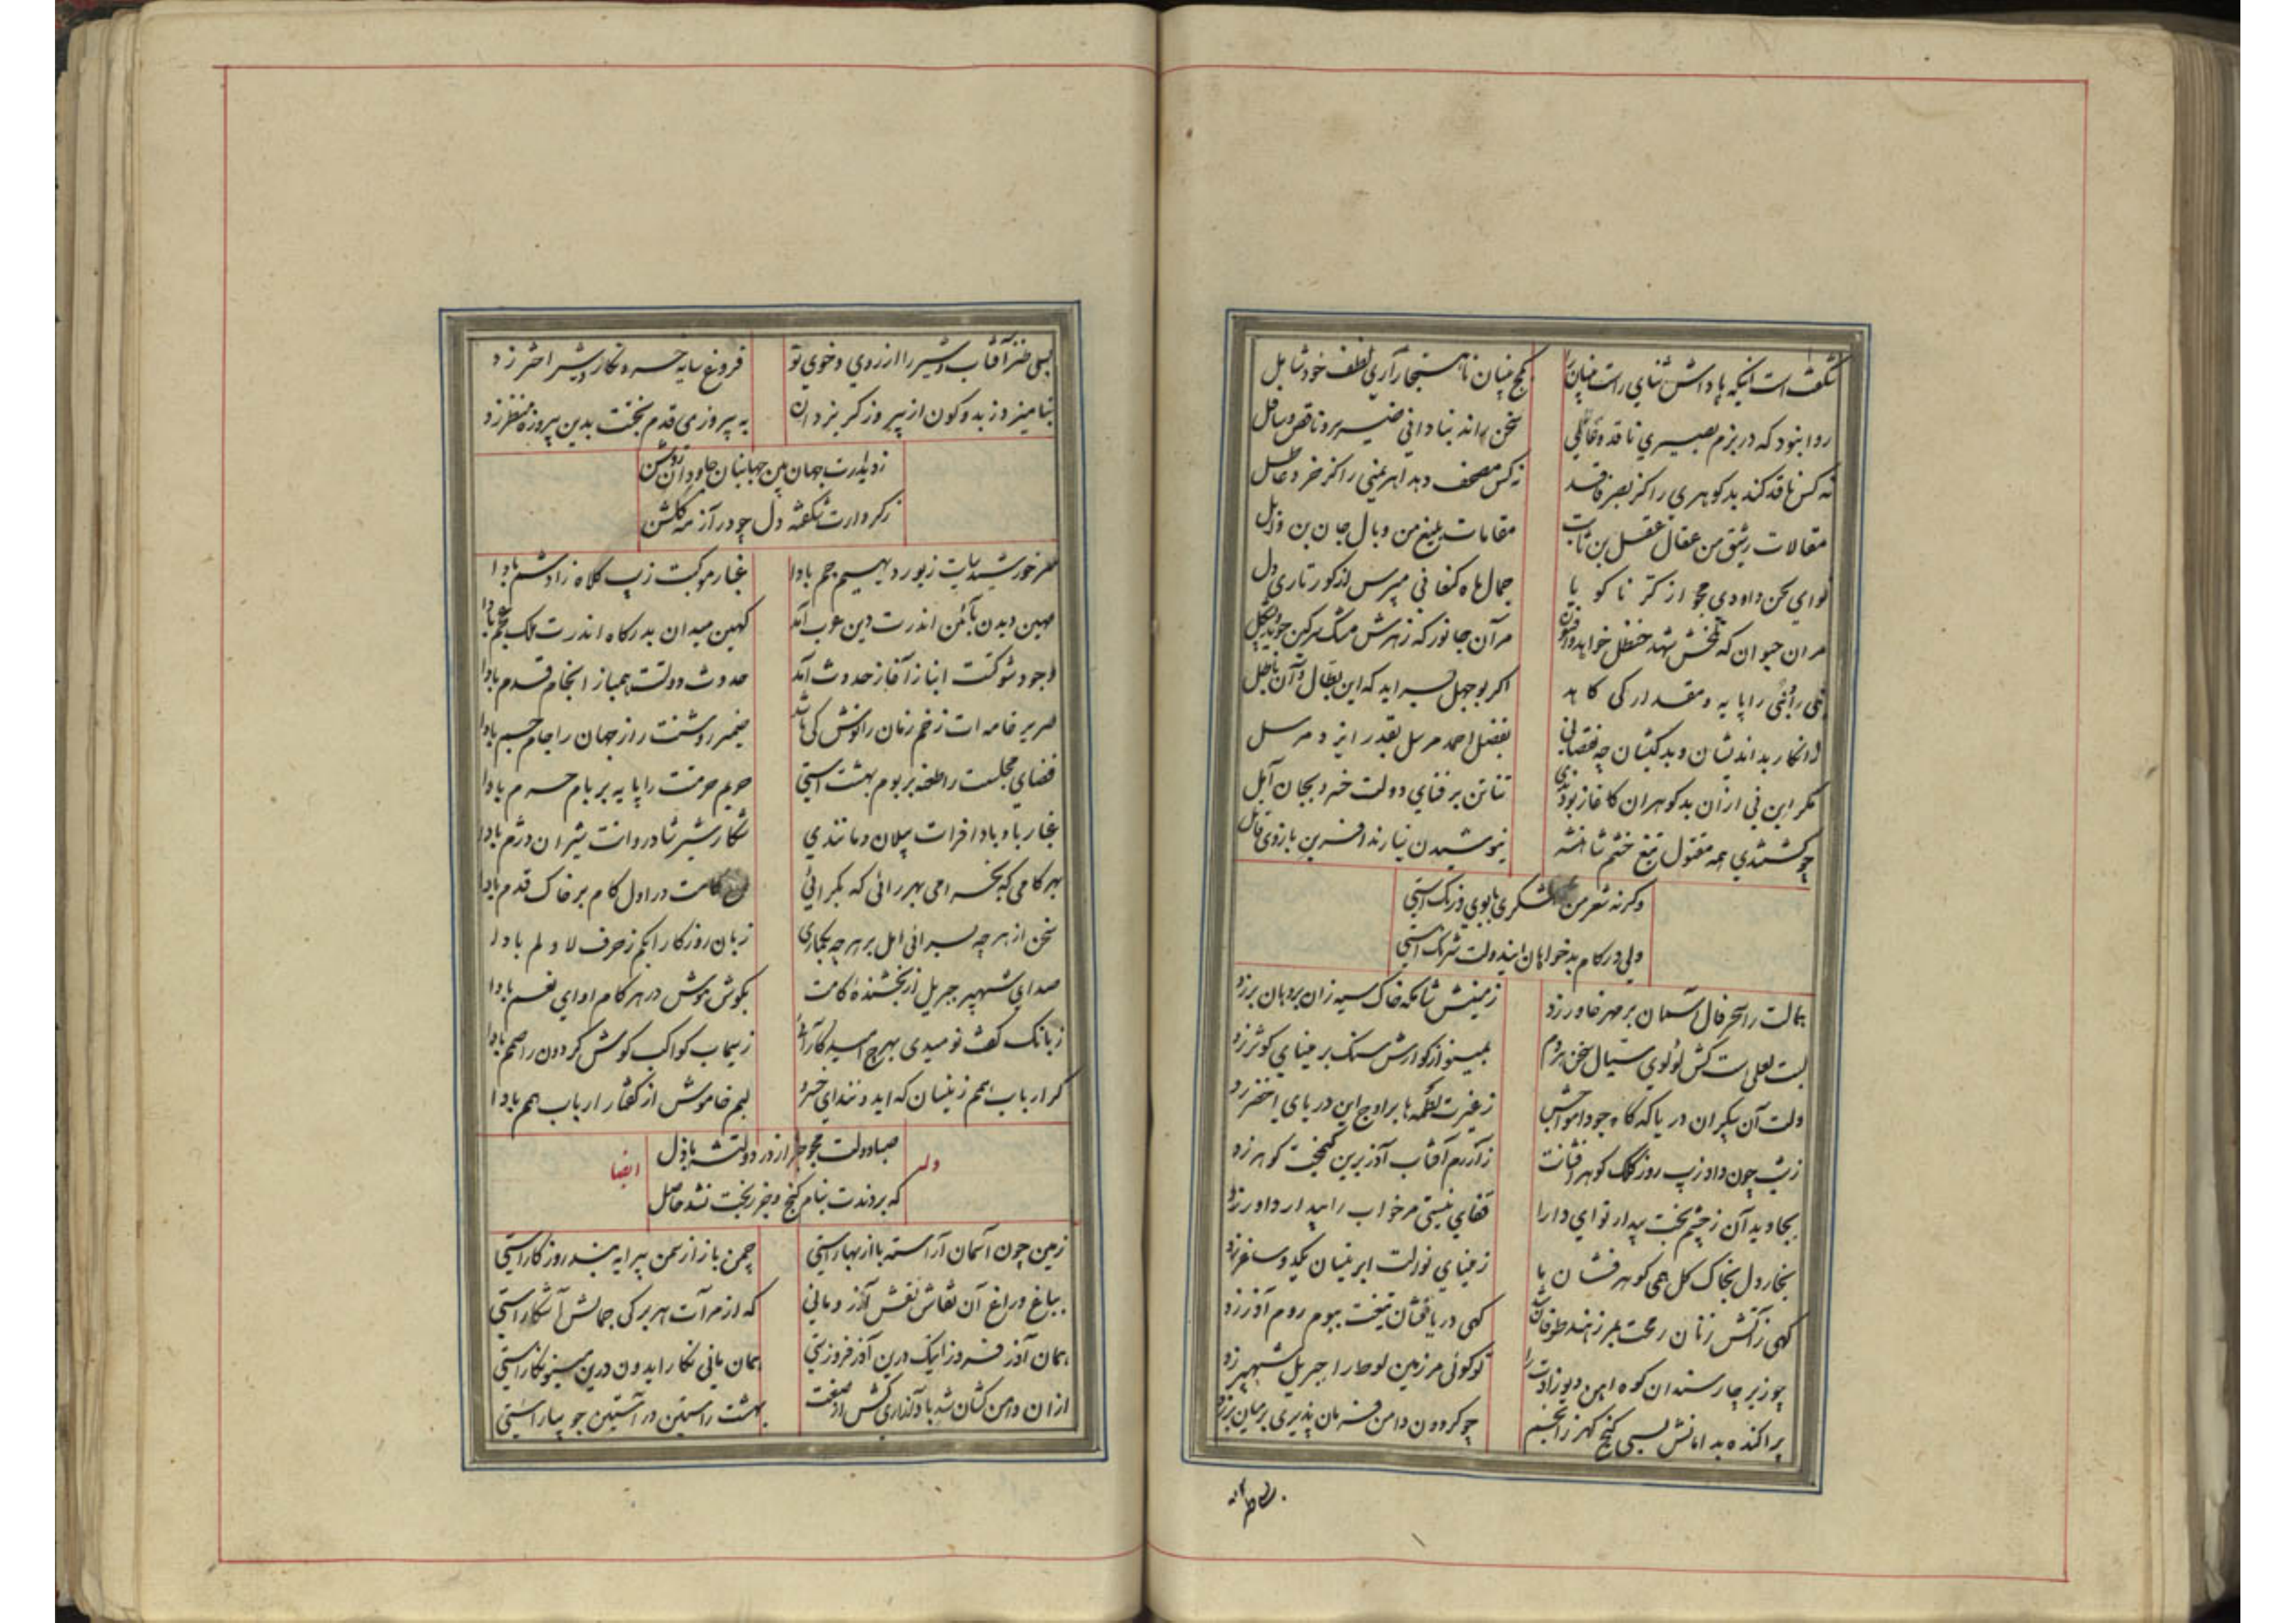 شگفت است اینکه پاداش ثنای راست بینان را
کج بینان ناهنجار آری لطف خود شامل
روا نبود که در بزم بصیری ناقد و قایل
سخن راند بنادانی ضریر و ناقص و سافل
نه کس ناقد کند بد گوهری را کز بصر فاقد
نه کس مصحف دهد اهریمنی را کز خرد عاطل
مقالات رشیق من عقال عقل بن ثابت
مقامات بلیغ من وبال جان بن وایل
نوای لحن داودی مجو از کر نا گویا
جمال ماه کنعانی مپرس از کور تاری دل
مر آن حیوان که تلخش شهد حنظل خواهد و افیون
مر آن جانور که زهرش مشک سرگین جوید
نبی را و نبی را پایه و مقدار کی کاهد
اگر بوجهل بسراید که این بطال و آن باطل
از انکار بد اندیشان و بد کیشان چه نقصانی
بفضل احمد مرسل بقدر ایزد مرسل
مگر این نی از آن بد گوهران کاغاز بودندی
تناتن بر فنای دولت خسرو بجان آیل
چو گشتندی همه مقتول تیغ خشم شاهنشه
نیوشیدن نیارند آفرین بازوی قاتل
وگرنه شعر من شکری با بوی و رنگ استی
ولی در کام بدخواهان ایندولت شرنگ استی
جمالت را سحر فال آسمان بر مهر خاور زد
زمینش شامگه خاک سیه زان بر دهان بر زد
لبت لعلی است کش لولوی سیال سخن هر دم
بمینو از گوارش سنگ بر مینای کوثر زد
دلت آن بیکران دریا که گاه جود امواجش
ز غیرت لطمه ها بر اوج این دریای اخضر زد
زیب چون داد زیب روز کلک گوهر افشانت
ز آزرم آفتاب آذرین گنجت گوهر زد
بجاوید آن ز چشم بخت بیدار تو ای دارا
قفای نیستی مر خواب را بیدار داور زد
بخار دل بخاک گل همی گوهر فشان با
ز مینای نوالت ابر نیسان یکدو ساغر زد
گهی ز آتش زنان رمحت بمرز هند طوفان شد
گهی دریا فشان تیغت ببوم روم آذر زد
چو زیر چار سندان کوه آهن دیو زادت را
تو گوئی مر زمین لوط را جبریل شهپر زد
پراکنده بدامانش بسی گنج گهر ز انجم
چو گردون دامن فرمان پذیری بر میان بر زد
بسی طنز آفتاب و شیر را از روی و خوی تو
فروغ سایه خسرو نگار شیر اختر زد
بنامیزد ز بد و کون از پیروز گر یزدان
به پیروزی قدم بخت بدین پیروزه منظر زد
ز دیدارت جهان بین جهانبان جاودان روشن
ز کردارت شگفته دل چو در آزمه گلشن
ظفر خورشید رایت زیور دیهیم جم بادا
غبار موکبت زیب کلاه زادشم بادا
مهین دیدن بآئین اندرت دین عرب آمد
کهین میدان بدرگاه اندرت ملک عجم بادا
وجود شوکتت انباز آغاز حدوث آمد
حدوث دولتت همباز انجام قدم بادا
صریر خامه ات زخم زمان را نوش کی باشد
ضمیر روشنت راز جهان را جام جم بادا
فضای مجلست را طعنه بر بوم بهشت استی
حریم حرمتت را پایه بر بام حرم بادا
غبار باد بادا فرات پیلان دمانندی
شکار شیر شادروانت شیران دژم بادا
بهر کامی که بخرامی بهر رائی که بگرائی
کامت در اول گام بر خاک قدم بادا
سخن از هر چه بسرائی امل بر هر چه بگماری
زبان روزگار ابکم ز حرف لا و لم بادا
صدای شهپر جبریل از بخشنده کامت
بگوش هوش در هر گام آوای نعم بادا
ز بانگ کف نومیدی بهرج امید کار آمد
ز سیماب کواکب گوش گردون را صمم بادا
گر ارباب همم زینسان که آید در ثنای خسرو
لبم خاموش از گفتار ارباب همم بادا
صبا دولت مجو جز از در دولتشه باذل
که بردندت بنام گنج و جز رنجت نشد حاصل
وله ایضا
زمین چون آسمان آراسته باز از بهار استی
چمن باز از سمن پیرایه بند روزگار استی
بباغ و راغ آن نقاش نقش آذر و مانی
که از مرآت هر برگی جمالش آشکار استی
همان آذر فروز اینک درین آذر فروزستی
همان مانی نگار ایدون درین مینو نگار استی
از آن دامن کشان شد باد آذاری کش از صنعت
بهشت راستین در آستین جویبار استی